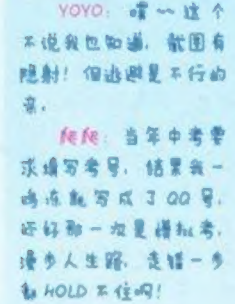 YOYO：噗~~这个
不说我也知道，截图有
隐射！但逃避是不行的
亲。
爬爬：当年中考要
求填写考号，结果我一
鸡冻就写成了QQ号，
还好那一次是模拟考，
漫步人生路，走错一步
都HOLD不住啊！